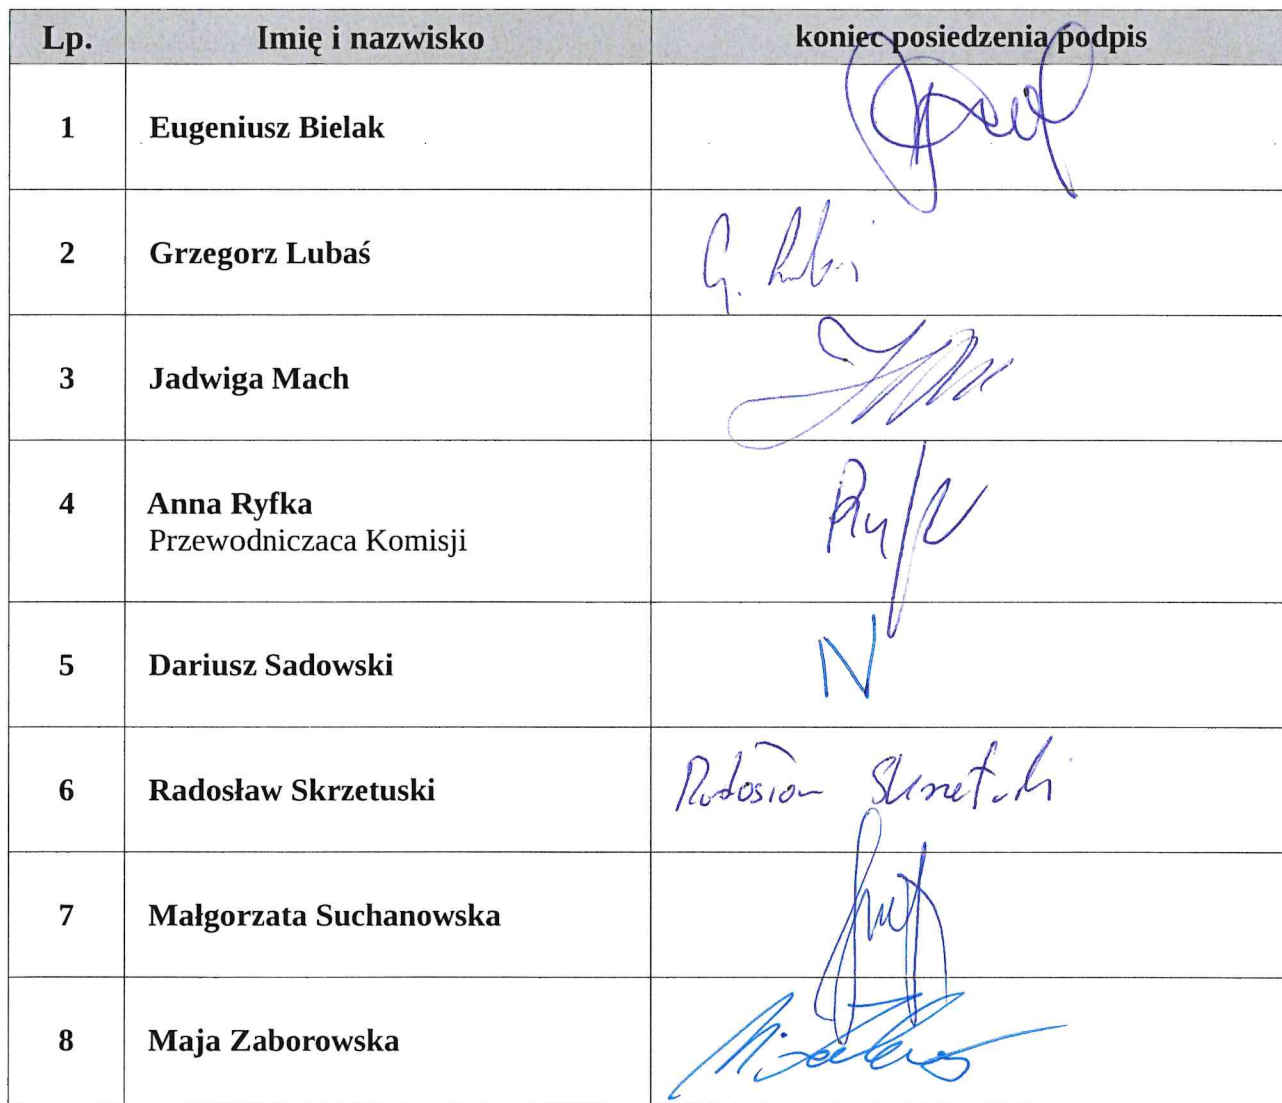 Lp. Imię i nazwisko koniec posiedzenia podpis
1 Eugeniusz Bielak
2 Grzegorz Lubaś G. Lubaś
3 Jadwiga Mach
4 Anna Ryfka
Przewodniczaca Komisji
5 Dariusz Sadowski N
6 Radosław Skrzetuski Radosław Skrzetuski
7 Małgorzata Suchanowska
8 Maja Zaborowska